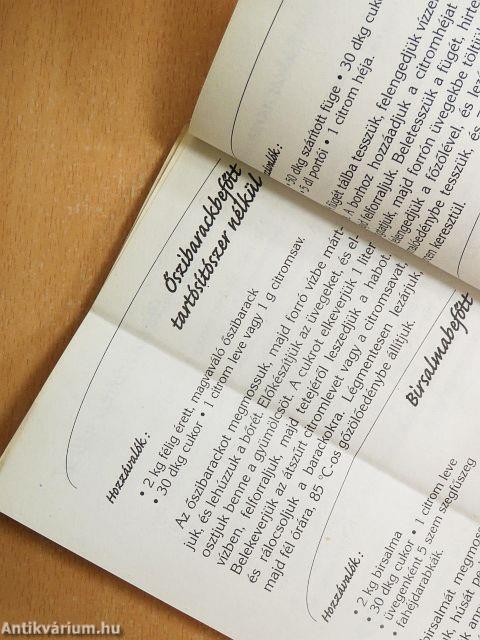 50 dkg szárított füge • 30 dkg cuk
5 dl portói • 1 citrom héja.
tálba tesszük, felengedjük vízzel
A borhoz hozzáadjuk a citromhéjat
felforraljuk. Beletesszük a fügét, hirte
majd forrón üvegekbe töltjü
a főzőlével, és lezá
tesszük, és
keresztül.
Őszibarackbefőtt
tartósítószer nélkül
Hozzávalók:
• 2 kg félig érett, magvaváló őszibarack
• 30 dkg cukor • 1 citrom leve vagy 1 g citromsav.
Az őszibarackot megmossuk, majd forró vízbe márt-
juk, és lehúzzuk a bőrét. Előkészítjük az üvegeket, és el-
osztjuk benne a gyümölcsöt. A cukrot elkeverjük 1 liter
vízben, felforraljuk, majd tetejéről leszedjük a habot.
Belekeverjük az átszűrt citromlevet vagy a citromsavat,
és rálocsoljuk a barackokra. Légmentesen lezárjuk,
majd fél órára, 85 °C-os gőzölőedénybe állítjuk.
Birsalmabefőtt
Hozzávalók:
• 2 kg birsalma
• 30 dkg cukor • 1 citrom leve
üvegenként 5 szem szegfűszeg
fahéjdarabkák.
Antikvárium.hu